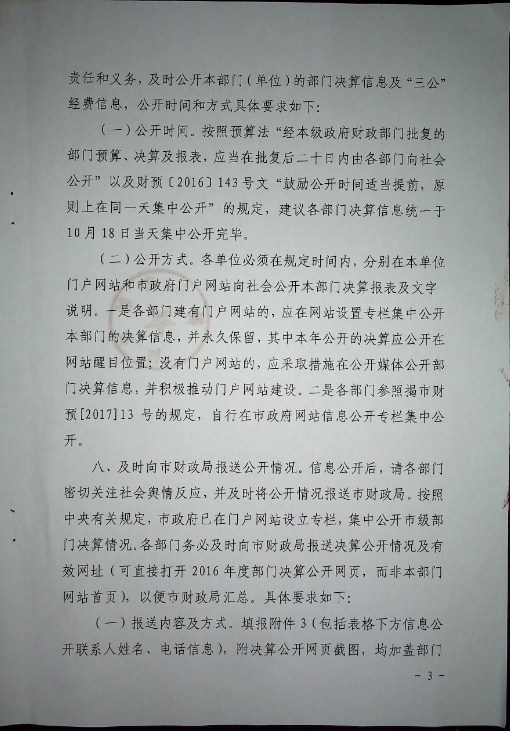 责任和义务，及时公开本部门（单位）的部门决算信息及“三公”
经费信息，公开时间和方式具体要求如下：
（一）公开时间。按照预算法“经本级政府财政部门批复的
部门预算、决算及报表，应当在批复后二十日内由各部门向社会
公开”以及财预〔2016〕143号文“鼓励公开时间适当提前，原
则上在同一天集中公开”的规定，建议各部门决算信息统一于
10月18日当天集中公开完毕。
（二）公开方式。各单位必须在规定时间内，分别在本单位
门户网站和市政府门户网站向社会公开本部门决算报表及文字
说明。一是各部门建有门户网站的，应在网站设置专栏集中公开
本部门的决算信息，并永久保留，其中本年公开的决算应公开在
网站醒目位置；没有门户网站的，应采取措施在公开媒体公开部
门决算信息，并积极推动门户网站建设。二是各部门参照揭市财
预[2017]13 号的规定，自行在市政府网站信息公开专栏集中公
开。
八、及时向市财政局报送公开情况。信息公开后，请各部门
密切关注社会舆情反应，并及时将公开情况报送市财政局。按照
中央有关规定，市政府已在门户网站设立专栏，集中公开市级部
门决算情况。各部门务必及时向市财政局报送决算公开情况及有
效网址（可直接打开2016年度部门决算公开网页，而非本部门
网站首页），以便市财政局汇总。具体要求如下：
（一）报送内容及方式。填报附件3（包括表格下方信息公
开联系人姓名、电话信息），附决算公开网页截图，均加盖部门
- 3 -